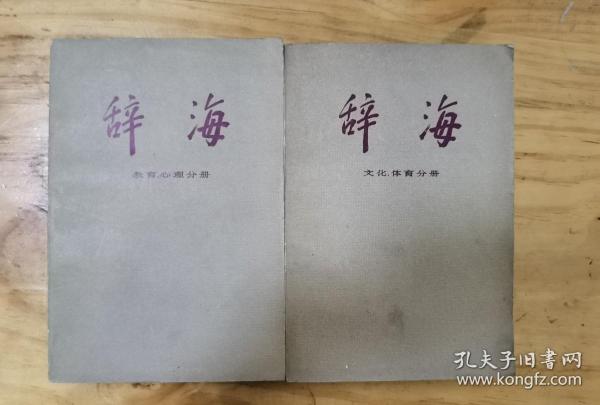 辞海
教育、心理分册
辞海
文化、体育分册
孔夫子旧书网
www.kongfz.com